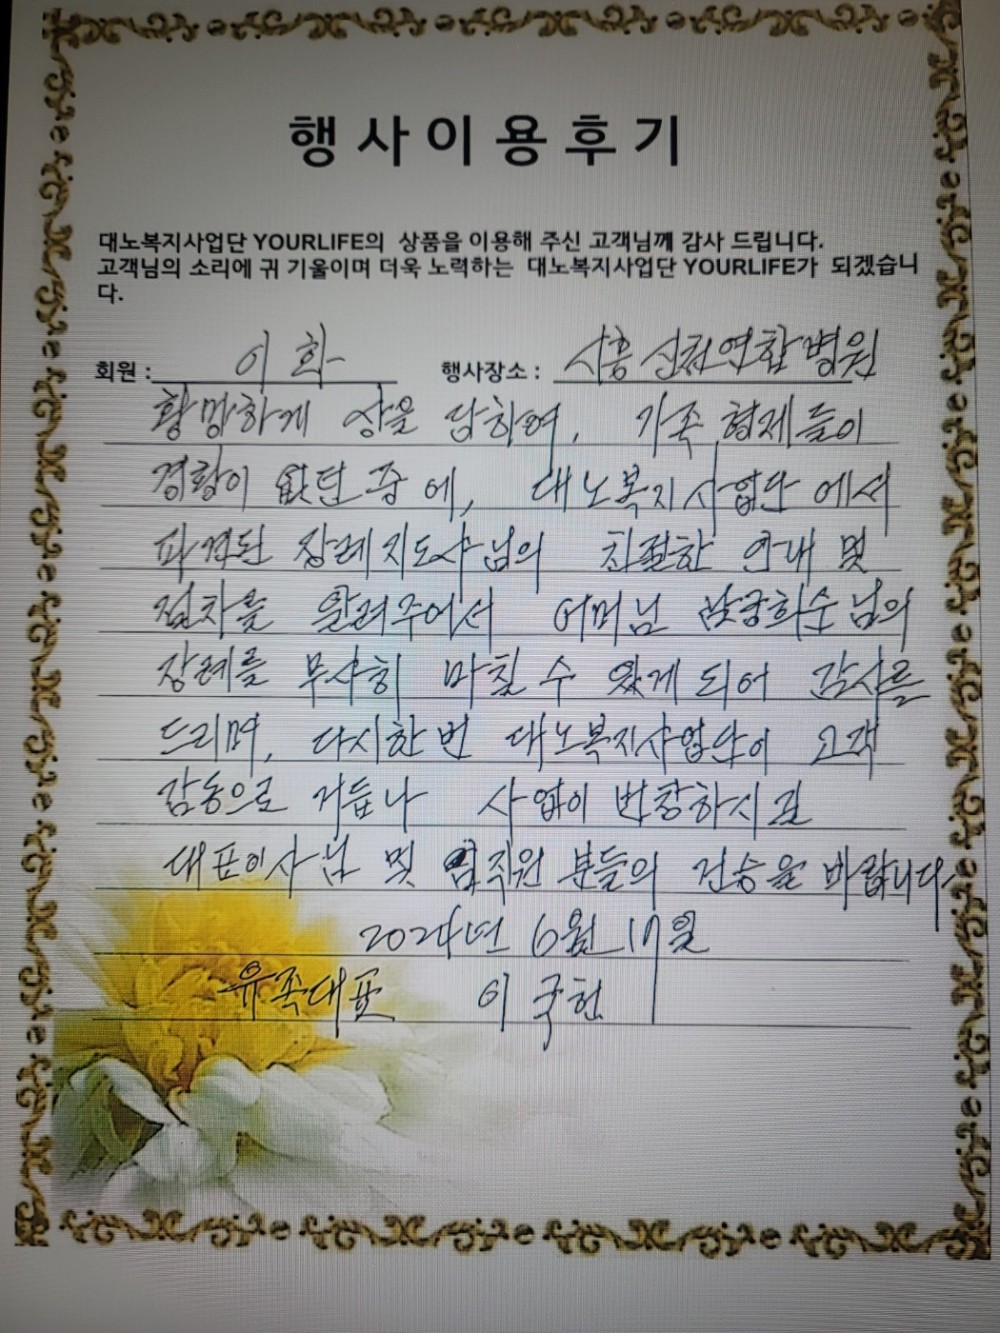 행사이용후기
대노복지사업단 YOURLIFE의 상품을 이용해 주신 고객님께 감사 드립니다.
고객님의 소리에 귀 기울이며 더욱 노력하는 대노복지사업단 YOURLIFE가 되겠습니
다.
회원 : 이화 행사장소 : 시흥 신천연합병원
황망하게 상을 당하여, 가족 형제들이
경황이 없던 중에, 대노복지사업단에서
파견된 장례지도사님의 친절한 안내 및
절차를 알려주어서 어머님 님의
장례를 무사히 마칠 수 있게 되어 감사를
드리며, 다시한번 대노복지사업단이 고객
감동으로 거듭나 사업이 번창하시길
대표이사님 및 임직원 분들의 건승을 바랍니다.
2024년 6월 17일
유족대표 이국헌